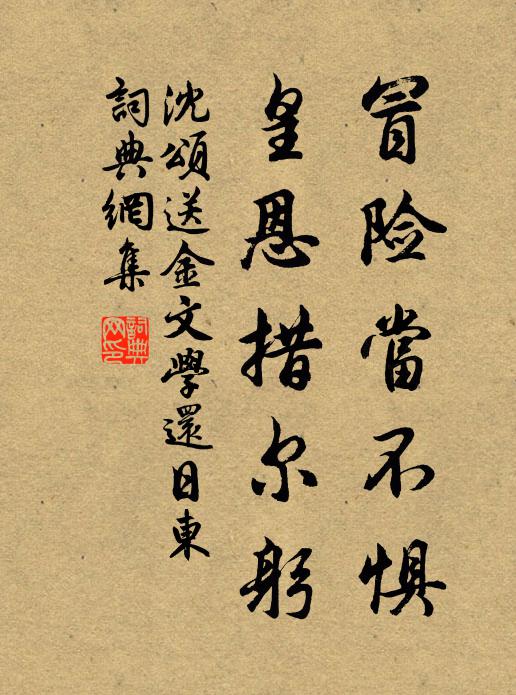 冒险當不惧
皇恩措尔躬
沈頌送金文學還日東
詞典網集
詞典网印